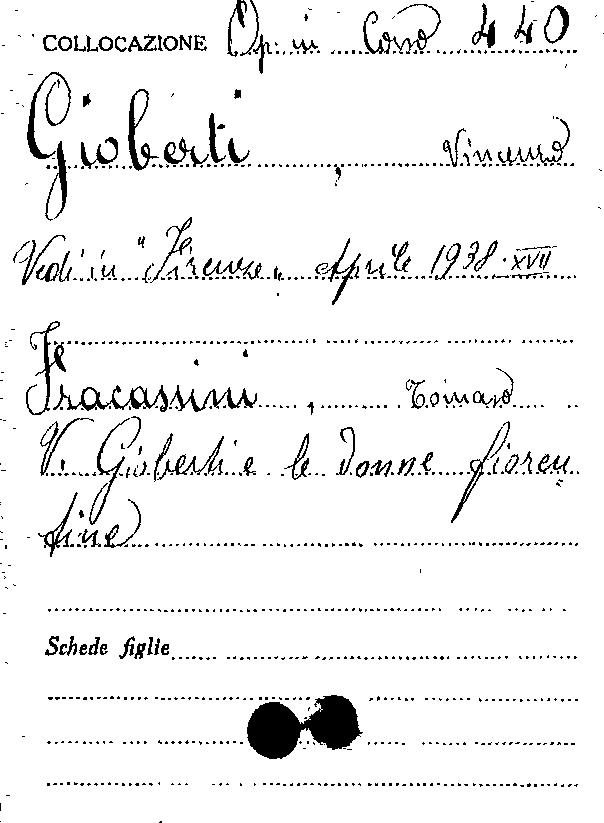 COLLOCAZIONE Op. in Corso 440
Gioberti, Vincenzo
Vedi in "Firenze" Aprile 1938·XVII
Fracassini, Tomaso
V. Gioberti e le donne fioren
tine
Schede figlie